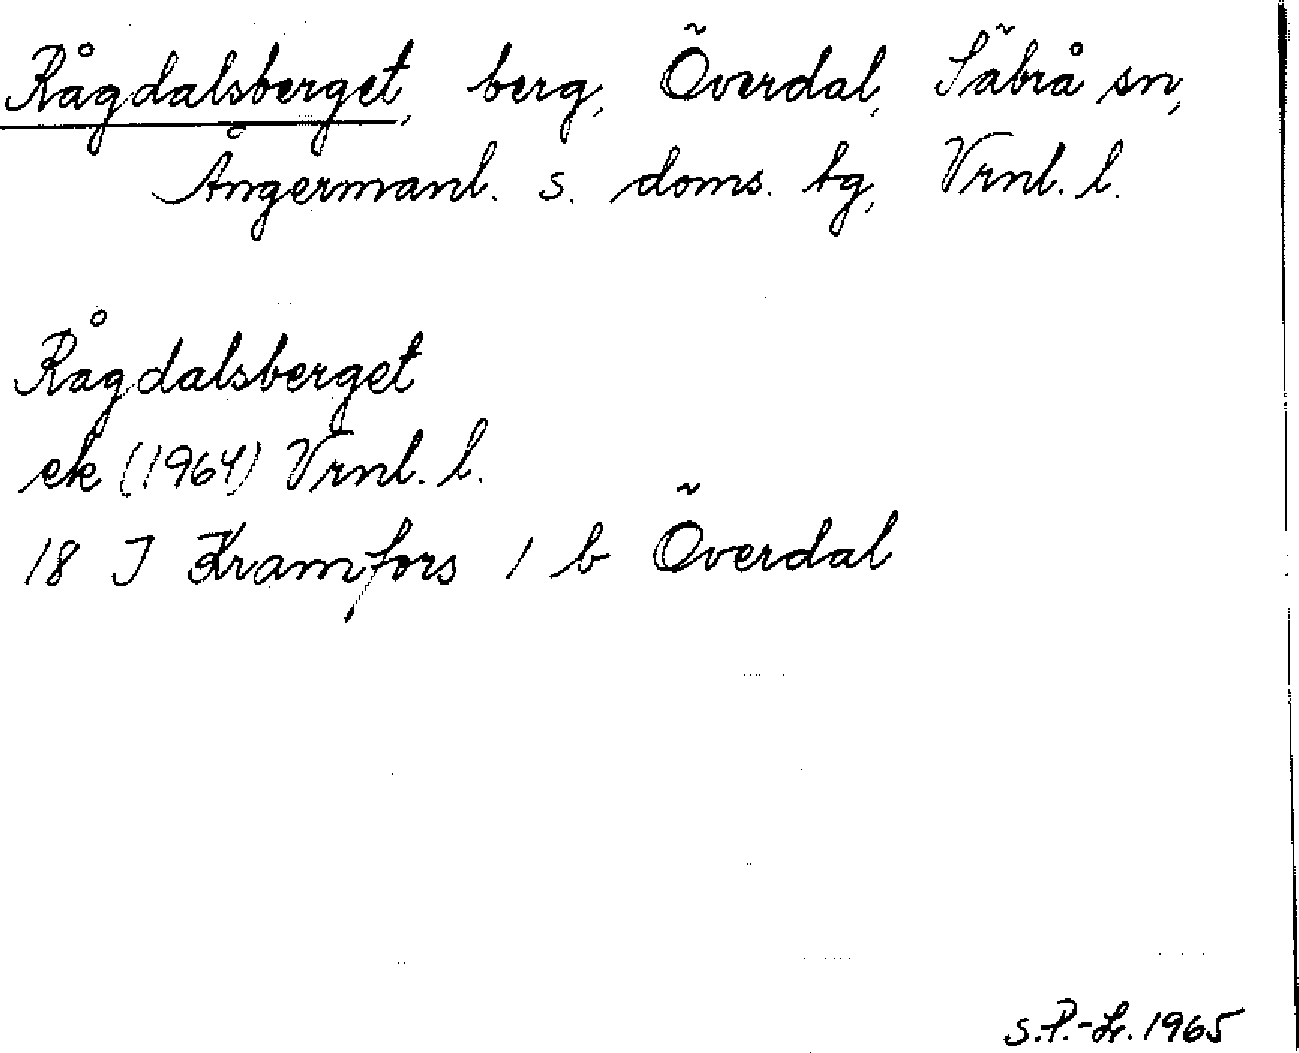 Rågdalsberget, berg, Överdal, Säbrå sn,
Ångermanl. s. doms. tg, Vrnl. l.
Rågdalsberget
ek (1964) Vrnl. l.
18 J Kramfors 1 b Överdal
S.P.-Lr. 1965